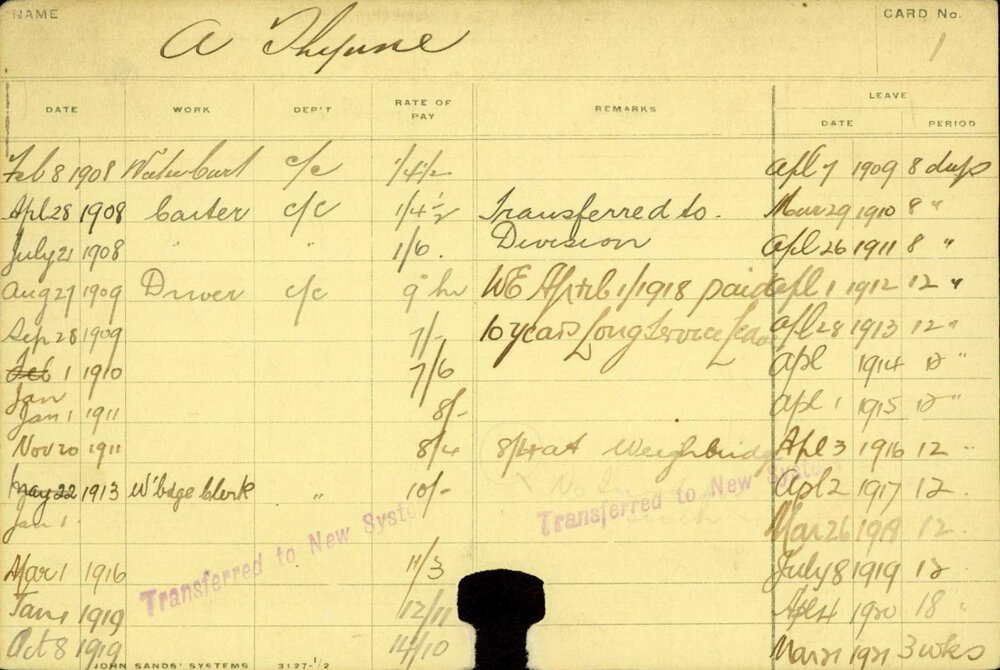 NAME CARD No.
A Thynne 1
LEAVE
DATE WORK DEP'T RATE OF PAY REMARKS DATE PERIOD
Feb 8 1908 c/c 1/4½ Apl 7 1909 8 days
Apl 28 1908 Carter c/c 1/4½ Transferred to. Mar 29 1910 8 "
July 21 1908 " " 1/6. Division Apl 26 1911 8 "
Aug 27 1909 Driver c/c 9" hr WE April 1/1918 paid Apl 1 1912 12 "
Sep 28 1909 7/- 10 years Long Service Leave Apl 28 1913 12 "
Feb 1 1910 7/6 Apl 1914 12 "
Jan
Jan 1 1911 8/- Apl 1 1915 12 "
Nov 20 1911 8/4 8/4 at Weighbridge Apl 3 1916 12 "
May 22 1913 W'bdge Clerk " 10/- No Apl 2 1917 12 "
Jan 1
Transferred to New Syste Transferred to New Syste
Mar 26 1918 12 "
Mar 1 1916 11/3 July 8 1919 12 "
Jan 1 1919 12/11 Apl 4 1920 18 "
Oct 8 1919 14/10 Mar 21 1921 3 wks
JOHN SANDS' SYSTEMS 3127-½